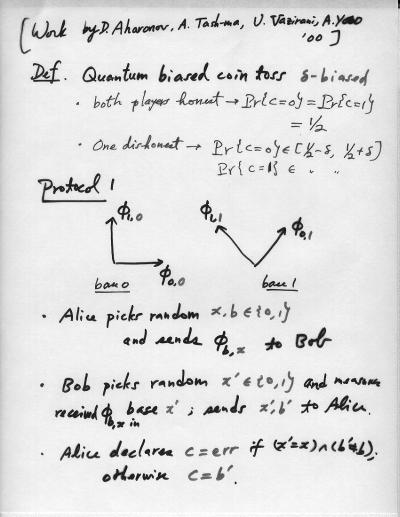 [Work by D. Aharonov, A. Tash-ma, U. Vazirani, A. Yao
'00]
Def. Quantum biased coin toss δ-biased
· both players honest → Pr{c=0} = Pr{c=1}
= 1/2
· One dishonest → Pr{c=0} ∈ [1/2-δ, 1/2+δ]
Pr{c=1} ∈ " "
Protocol 1
ϕ1,0 ϕ1,1 ϕ0,1
ϕ0,0
base 0 base 1
· Alice picks random x,b ∈ {0,1}
and sends ϕb,x to Bob
· Bob picks random x' ∈ {0,1} and measure
received ϕb,x in base x' ; sends x',b' to Alice.
· Alice declares c=err if (x'=x)∧(b'≠b),
otherwise c=b'.